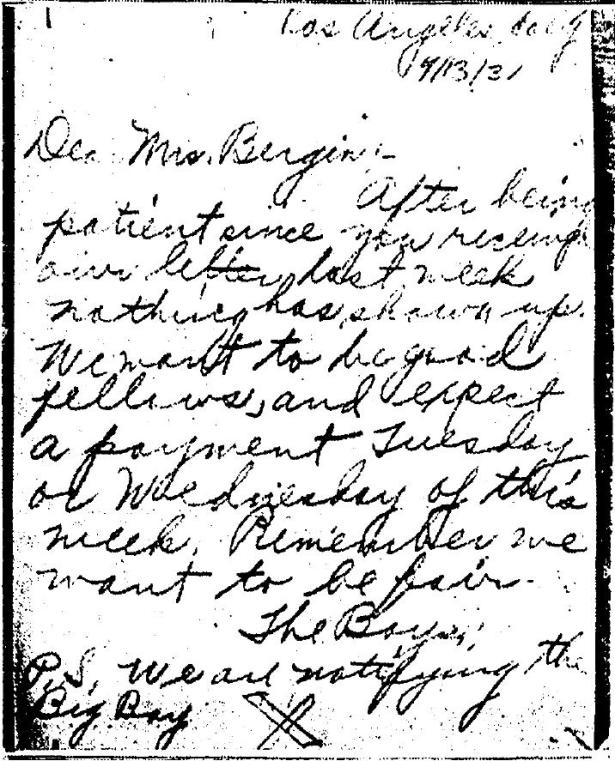 Los Angeles, Calif
9/13/31
Dea Mrs. Bergin:-
After being
patient since you received
our letter last week
nothing has shown up.
We want to be good
fellows, and expect
a payment Tuesday
or Wednesday of this
week. Remember we
want to be fair.
The Boys.
P.S. We are notifying the
Big Boy X